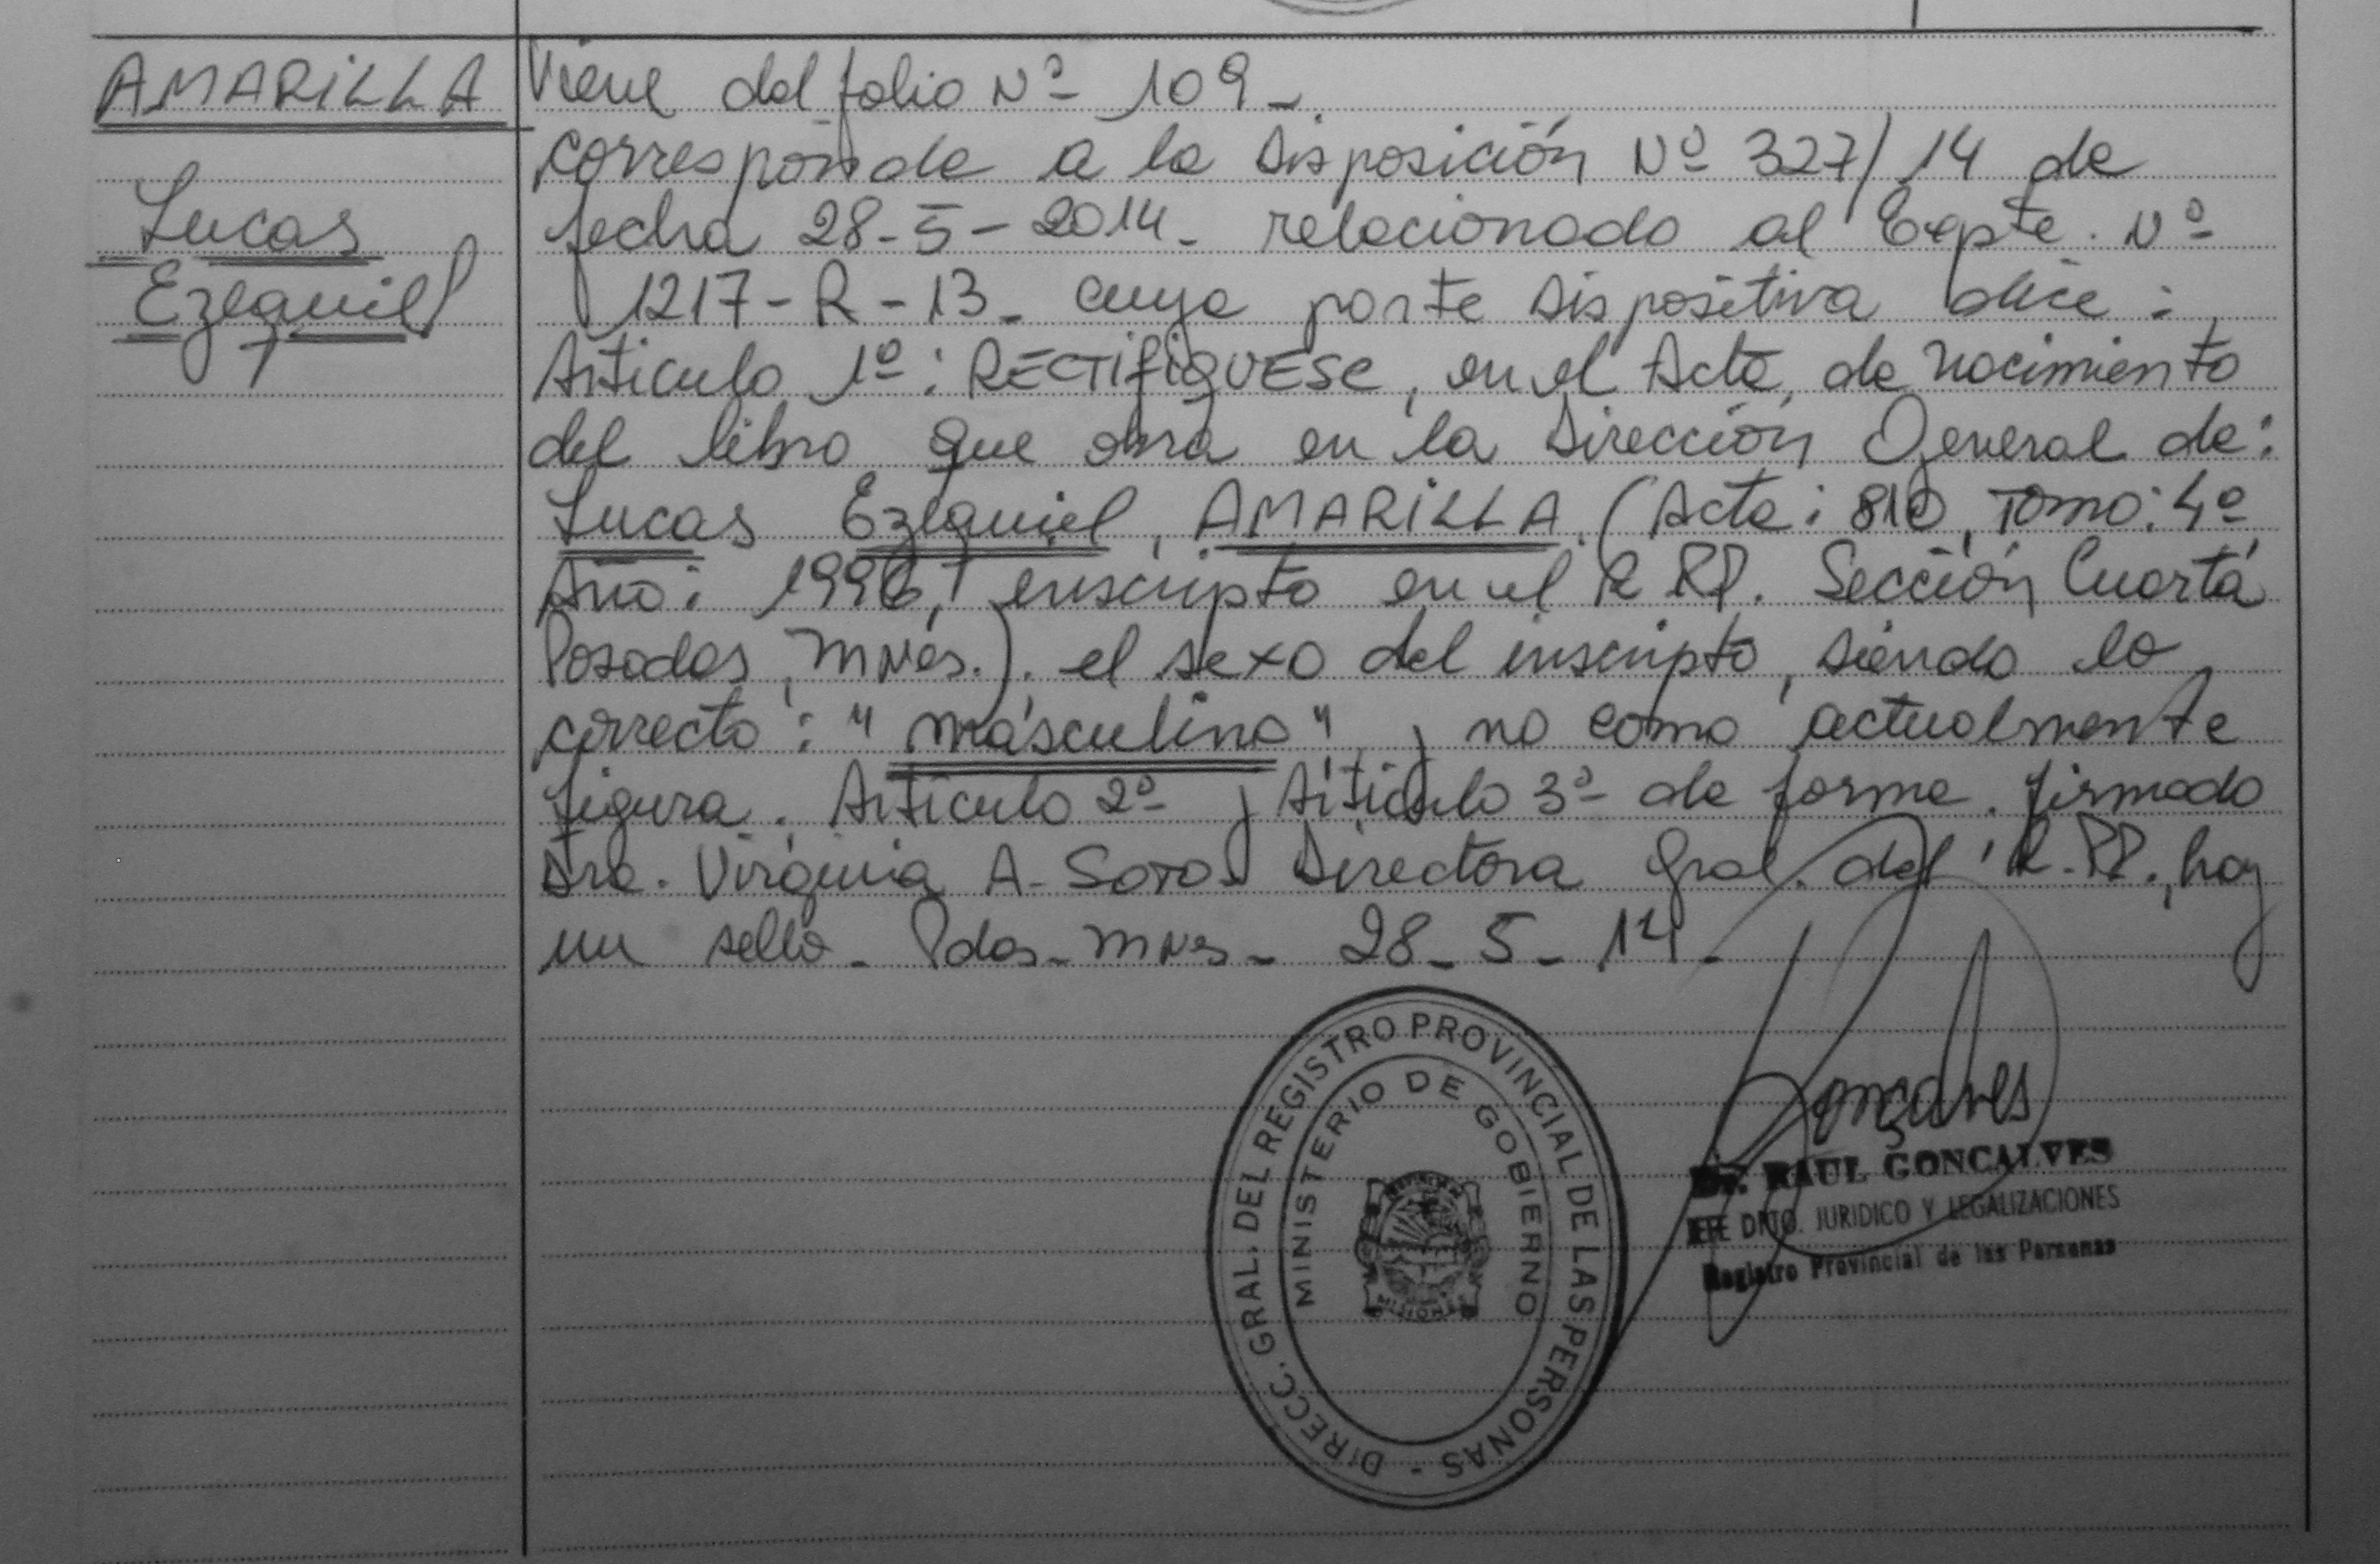 AMARILLA
Lucas
Ezequiel
Viene del folio Nº 109_
corresponde a la Disposición Nº 327/14 de
fecha 28-5-2014_ relacionado al Expte. Nº
1217-R-13_ cuya parte Dispositiva dice:
Articulo 1º: RECTIFIQUESE, en el Acta de nacimiento
del libro que obra en la Dirección General de:
Lucas Ezequiel, AMARILLA (Acta: 810, Tomo: 4º
Año: 1996, inscripto en el R.P.P. Sección Cuarta
Posadas, Mnes.). el sexo del inscripto, siendo lo
correcto: "masculino", y no como actualmente
figura. Articulo 2º y Articulo 3º de forma. firmado
Dra. Virginia A. Soto Directora Gral. del R.P.P., hay
un sello_ Pdas_Mnes_ 28_5_14_
DIRECC. GRAL. DEL REGISTRO PROVINCIAL DE LAS PERSONAS -
MINISTERIO DE GOBIERNO
MISIONES
Gonçalves
Dr. RAUL GONCALVES
JEFE DPTO. JURIDICO Y LEGALIZACIONES
Registro Provincial de las Personas